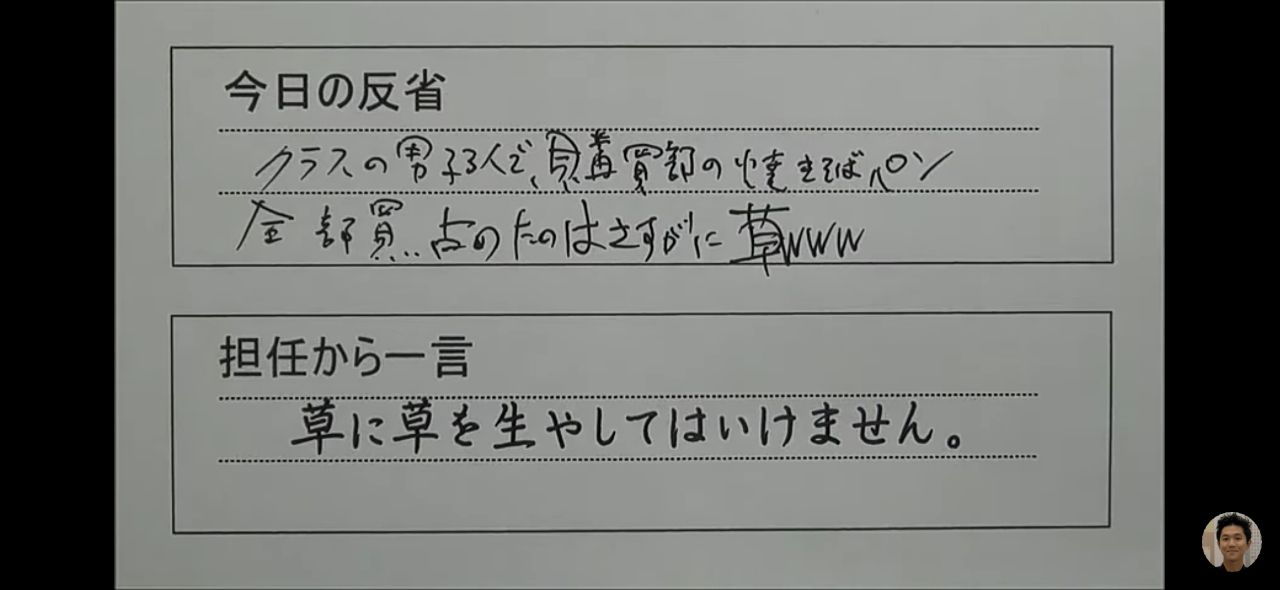 今日の反省
クラスの男子3人で、購買部の焼きそばパン
全部買い占めたのはさすがに草www
担任から一言
草に草を生やしてはいけません。